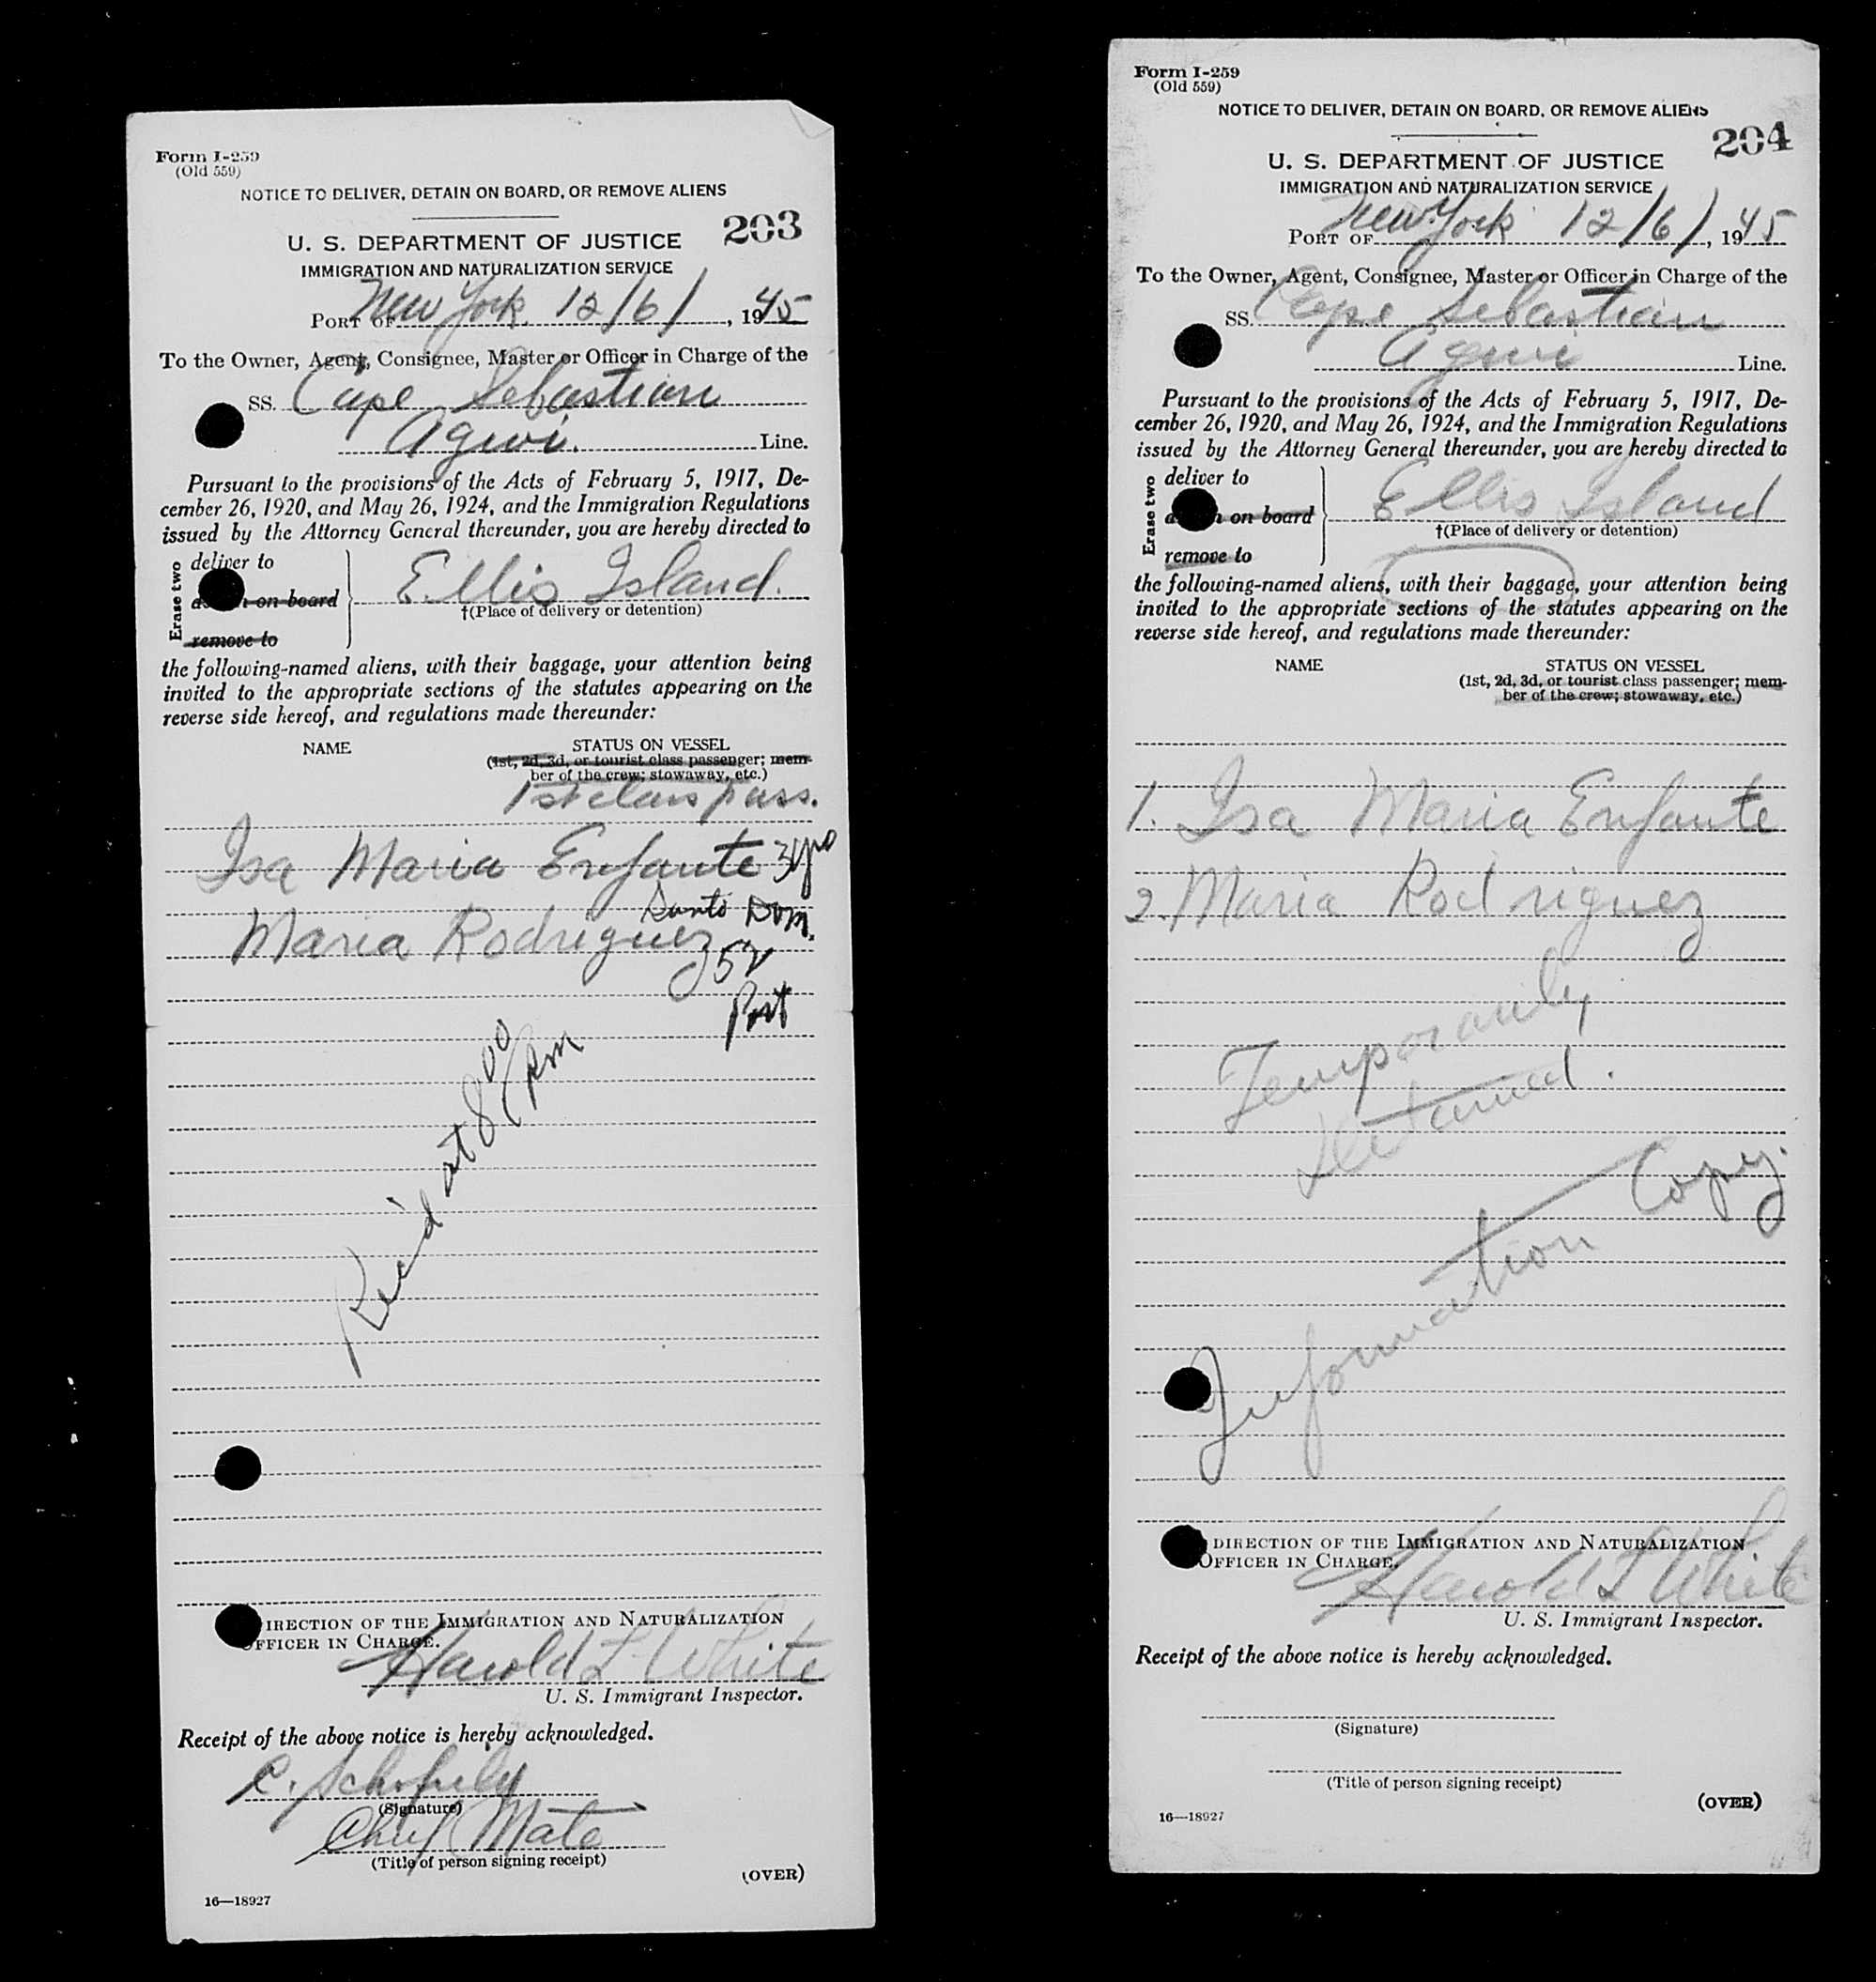 Form I-259
(Old 559)
NOTICE TO DELIVER, DETAIN ON BOARD, OR REMOVE ALIENS
203
U. S. DEPARTMENT OF JUSTICE
IMMIGRATION AND NATURALIZATION SERVICE
PORT OF New York 12/6/, 1945
To the Owner, Agent, Consignee, Master or Officer in Charge of the
SS. Cape Sebastian
Agwi. Line.
Pursuant to the provisions of the Acts of February 5, 1917, De-
cember 26, 1920, and May 26, 1924, and the Immigration Regulations
issued by the Attorney General thereunder, you are hereby directed to
Erase two
deliver to
on board
remove to
Ellis Island.
†(Place of delivery or detention)
the following-named aliens, with their baggage, your attention being
invited to the appropriate sections of the statutes appearing on the
reverse side hereof, and regulations made thereunder:
NAME STATUS ON VESSEL
(1st, 2d, 3d, or tourist class passenger; mem-
ber of the crew; stowaway, etc.)
1st class pass.
Isa Maria Enfante
Santo Dom.
Maria Rodriguez
52
Port
Rec'd at 8 00 pm
DIRECTION OF THE IMMIGRATION AND NATURALIZATION
OFFICER IN CHARGE.
Harold L White
U. S. Immigrant Inspector.
Receipt of the above notice is hereby acknowledged.
C.
(Signature)
Chief Mate
(Title of person signing receipt)
(OVER)
16—18927
Form I-259
(Old 559)
NOTICE TO DELIVER, DETAIN ON BOARD, OR REMOVE ALIENS
204
U. S. DEPARTMENT OF JUSTICE
IMMIGRATION AND NATURALIZATION SERVICE
PORT OF New York 12/6/, 1945
To the Owner, Agent, Consignee, Master or Officer in Charge of the
SS. Cape Sebastian
Agwi Line.
Pursuant to the provisions of the Acts of February 5, 1917, De-
cember 26, 1920, and May 26, 1924, and the Immigration Regulations
issued by the Attorney General thereunder, you are hereby directed to
Erase two
deliver to
on board
remove to
Ellis Island
†(Place of delivery or detention)
the following-named aliens, with their baggage, your attention being
invited to the appropriate sections of the statutes appearing on the
reverse side hereof, and regulations made thereunder:
NAME STATUS ON VESSEL
(1st, 2d, 3d, or tourist class passenger; mem-
ber of the crew; stowaway, etc.)
1. Isa Maria Enfante
2. Maria Rodriguez
Temporarily
Detained.
Information Copy.
DIRECTION OF THE IMMIGRATION AND NATURALIZATION
OFFICER IN CHARGE.
Harold L White
U. S. Immigrant Inspector.
Receipt of the above notice is hereby acknowledged.
(Signature)
(Title of person signing receipt)
(OVER)
16—18927